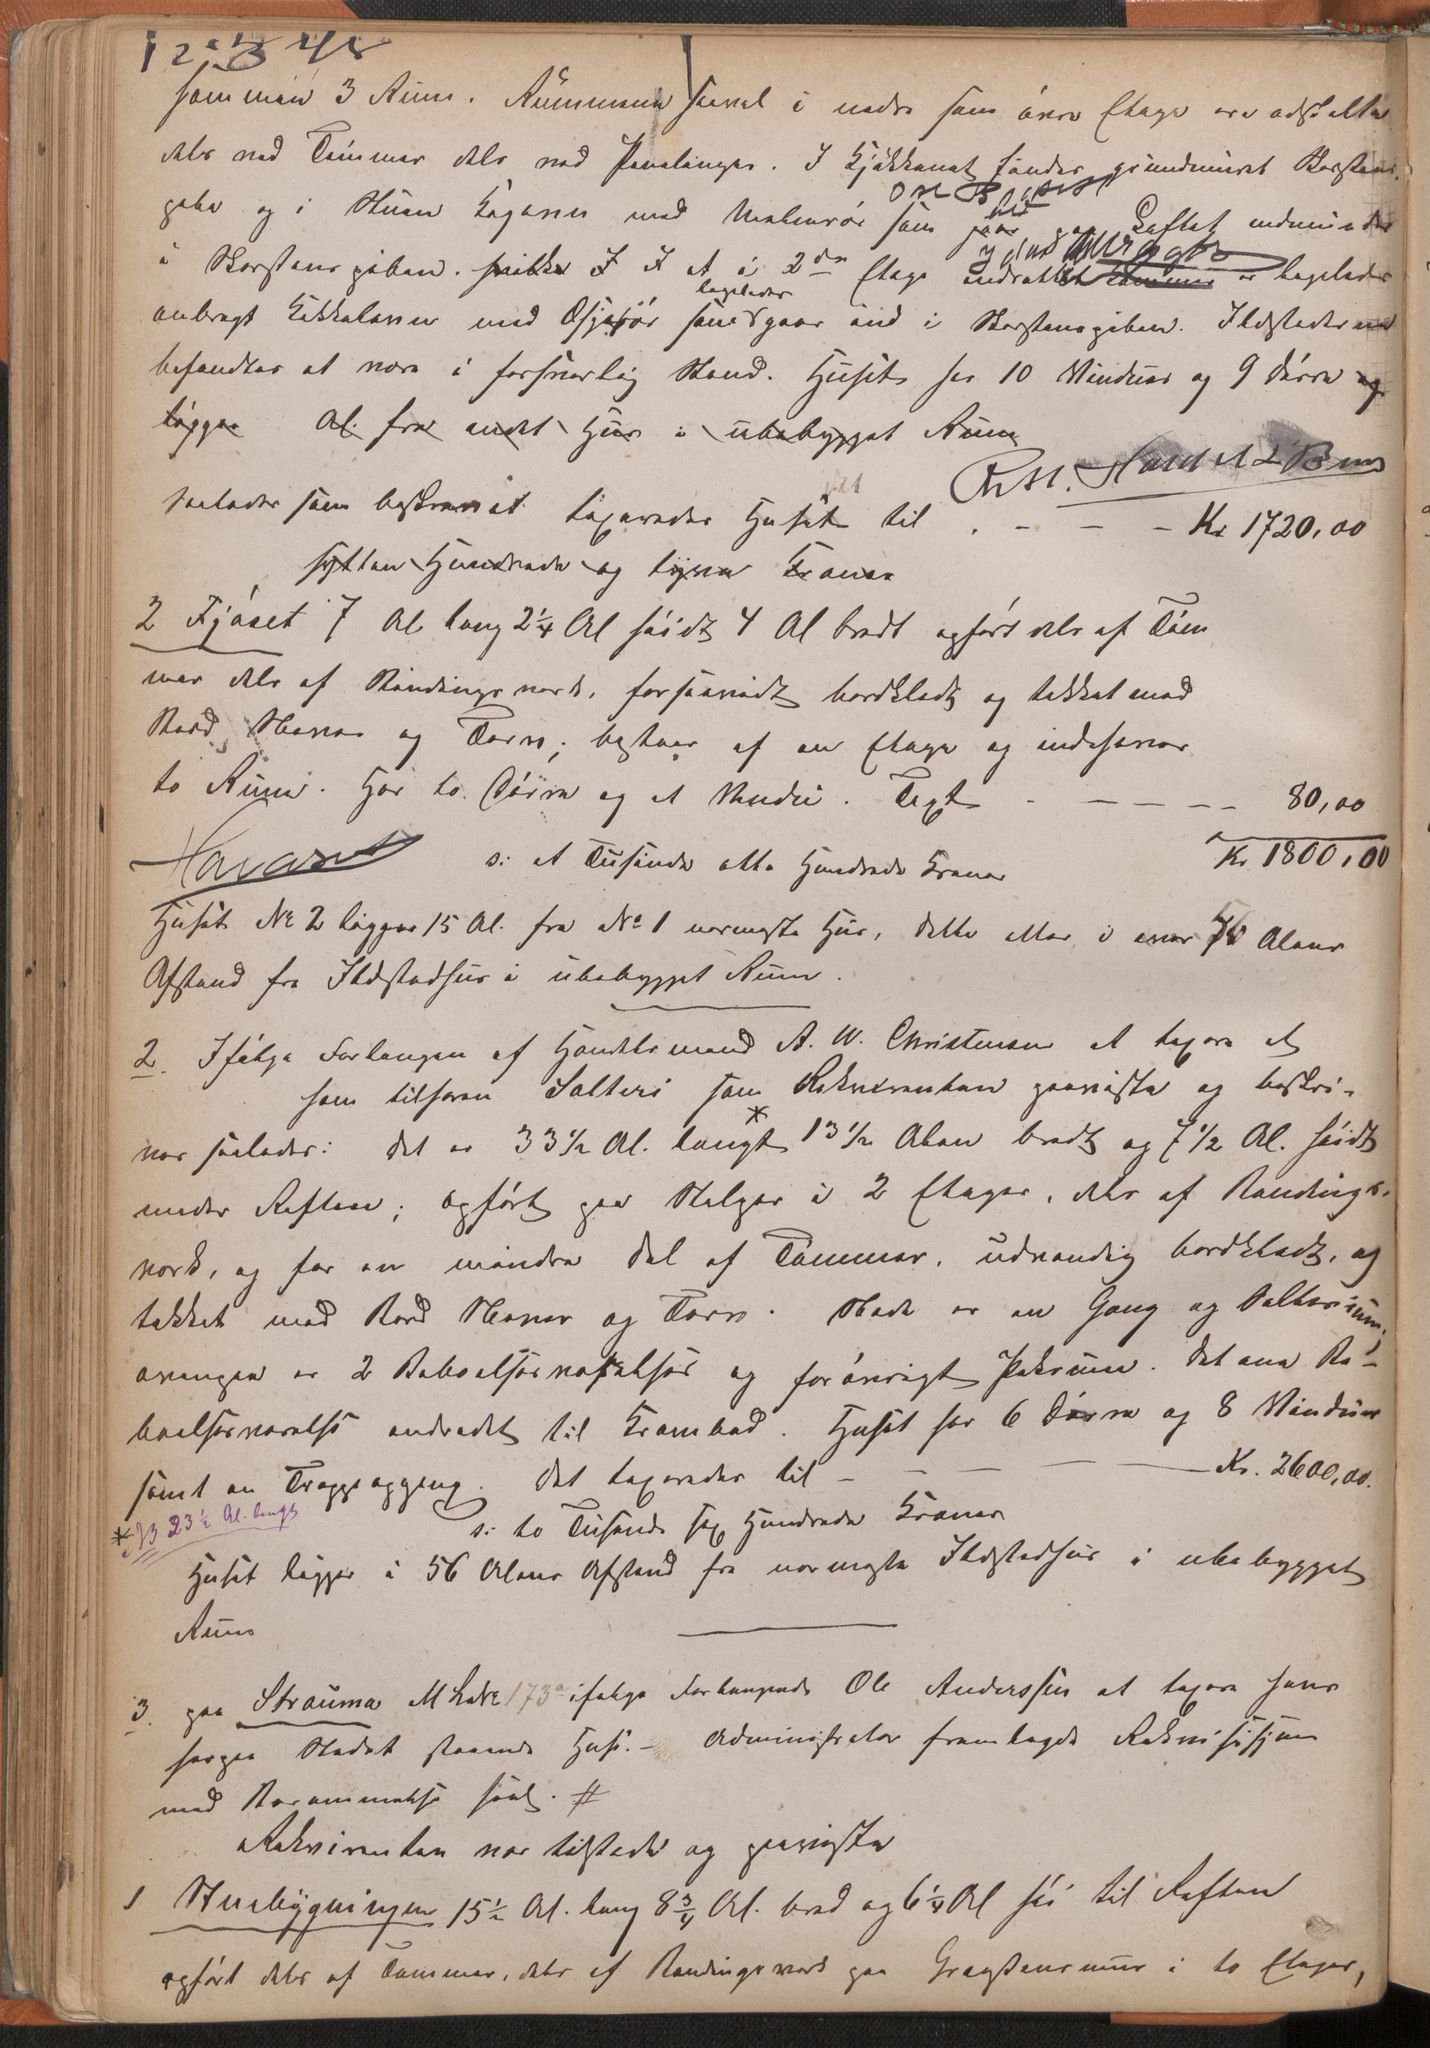 sammen 3 Rum. Rummene saavel i nedre som øvre Etage ere adskilte
dels ved Tømmer dels ved Panelinger. I Kjøkkenet findes grundmuret Skorstens-
pibe og i Stuen Kogeovn med Malmrør som gaar paa Loftet indmundes
i Skorstenspiben. I Et i 2den Etage indrettet er ligeledes
anbragt Kakkelovn med Ofsrør som ligeledes gaar ind i Skorstenspiben. Ildstederne
befandtes at være i forsvarlig Stand. Huset har 10 Vinduer og 9 Dørre og
ligger Al. fra andet Hus i ubebygget Rum
saaledes som beskrevet taxeredes Huset til . - - - Kr 1720,00
sytten Hundrede og tyve Kroner
2 Fjøset 7 Al lang 2 1/4 Al høidt 4 Al bredt opført dels af Tøm
mer dels af Bindingsverk, forsaavidt bordklædt og tækket med
Bord Næver og Torv; bestaar af en Etage og indeholder
to Rum. Har to Dørre og et Vindu. Taxt - - - - - 80,00
s: et Tusinde otte Hundrede Kroner Kr 1800,00
Huset No 2 ligger 15 Al. fra No 1 nærmeste Hus, dette atter i over 70 Alens
Afstand fra Ildstedshus i ubebygget Rum.
2. Ifølge Forlangen af Handelsmand A. W. Christensen at taxere et
ham tilhøren Salteri som Rekvirenten paaviste og beskri-
ves saaledes: Det er 33 1/2 Al. langt * 13 1/2 Alen bredt og 7 1/2 Al. høidt
under Raften; opført paa Stolper i 2 Etager, dels af Bindings-
verk, og for en mindre Del af Tømmer, udvendig bordklædt, og
tækket med Bord Næver og Torv. Nede er en Gang og Salterirum,
ovenpaa er 2 Beboelsesværelser og forøvrigt Pakrum. Det ene Be-
boelsesværelse indredet til Krambod. Huset har 6 Dørre og 8 Vinduer
samt en Trappeopgang. Det taxeredes til - - - - - Kr. 2600,00.
* NB 23 1/2 Al. langt
s: to Tusinde sex Hundrede Kroner
Huset ligger i 56 Alens Afstand fra nærmeste Ildstedhus i ubebygget
Rum
3. paa Strauma M No 173a ifølge Forlangende Ole Anderssen at taxere hans
herpaa Stedet staaende Huse. - Administrator fremlagde Rekvisisjon
med Berammelse saal. #
Rekvirenten var tilstede og paaviste
1 Stuebygningen 15 1/2 Al. lang 8 3/4 Al. bred og 6 1/4 Al høi til Raften
opført dels af Tømmer, dels af Bindingsverk paa Graastensmur i to Etager,